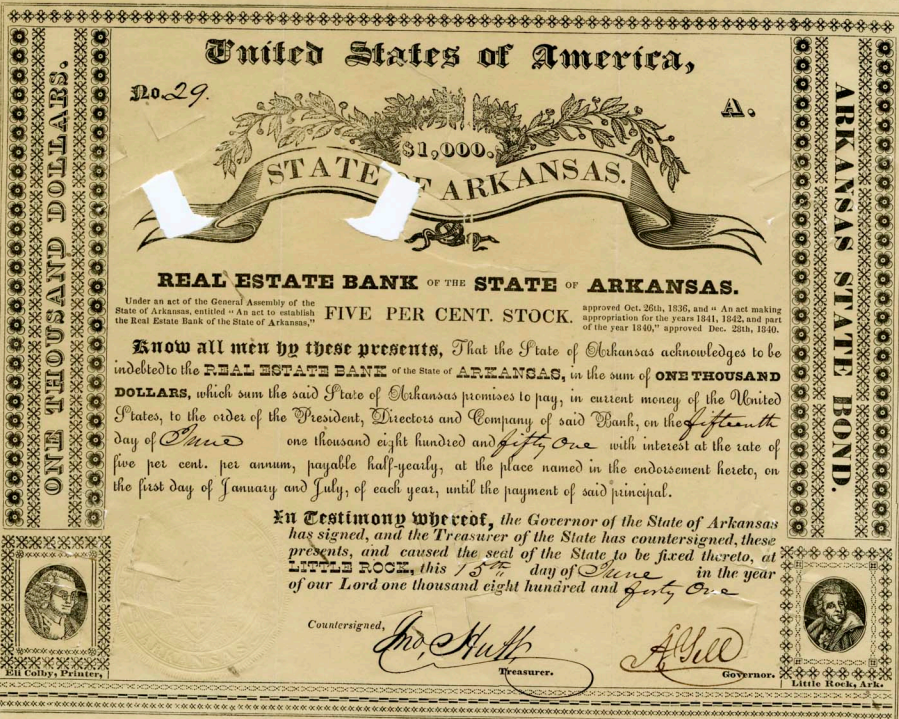 United States of America,
No. 29.
A.
$1,000.
STATE OF ARKANSAS.
ONE THOUSAND DOLLARS.
ARKANSAS STATE BOND.
REAL ESTATE BANK OF THE STATE OF ARKANSAS.
Under an act of the General Assembly of the
State of Arkansas, entitled "An act to establish
the Real Estate Bank of the State of Arkansas,"
FIVE PER CENT. STOCK.
approved Oct. 26th, 1836, and "An act making
appropriation for the years 1841, 1842, and part
of the year 1840," approved Dec. 28th, 1840.
Know all men by these presents, That the State of Arkansas acknowledges to be
indebted to the REAL ESTATE BANK of the State of ARKANSAS, in the sum of ONE THOUSAND
DOLLARS, which sum the said State of Arkansas promises to pay, in current money of the United
States, to the order of the President, Directors and Company of said Bank, on the fifteenth
day of June one thousand eight hundred and fifty One with interest at the rate of
five per cent. per annum, payable half-yearly, at the place named in the endorsement hereto, on
the first day of January and July, of each year, until the payment of said principal.
In Testimony whereof, the Governor of the State of Arkansas
has signed, and the Treasurer of the State has countersigned, these
presents, and caused the seal of the State to be fixed thereto, at
LITTLE ROCK, this 15th day of June in the year
of our Lord one thousand eight hundred and forty One
Countersigned,
Jno, Hutt
Treasurer.
Governor.
Eli Colby, Printer,
Little Rock, Ark.